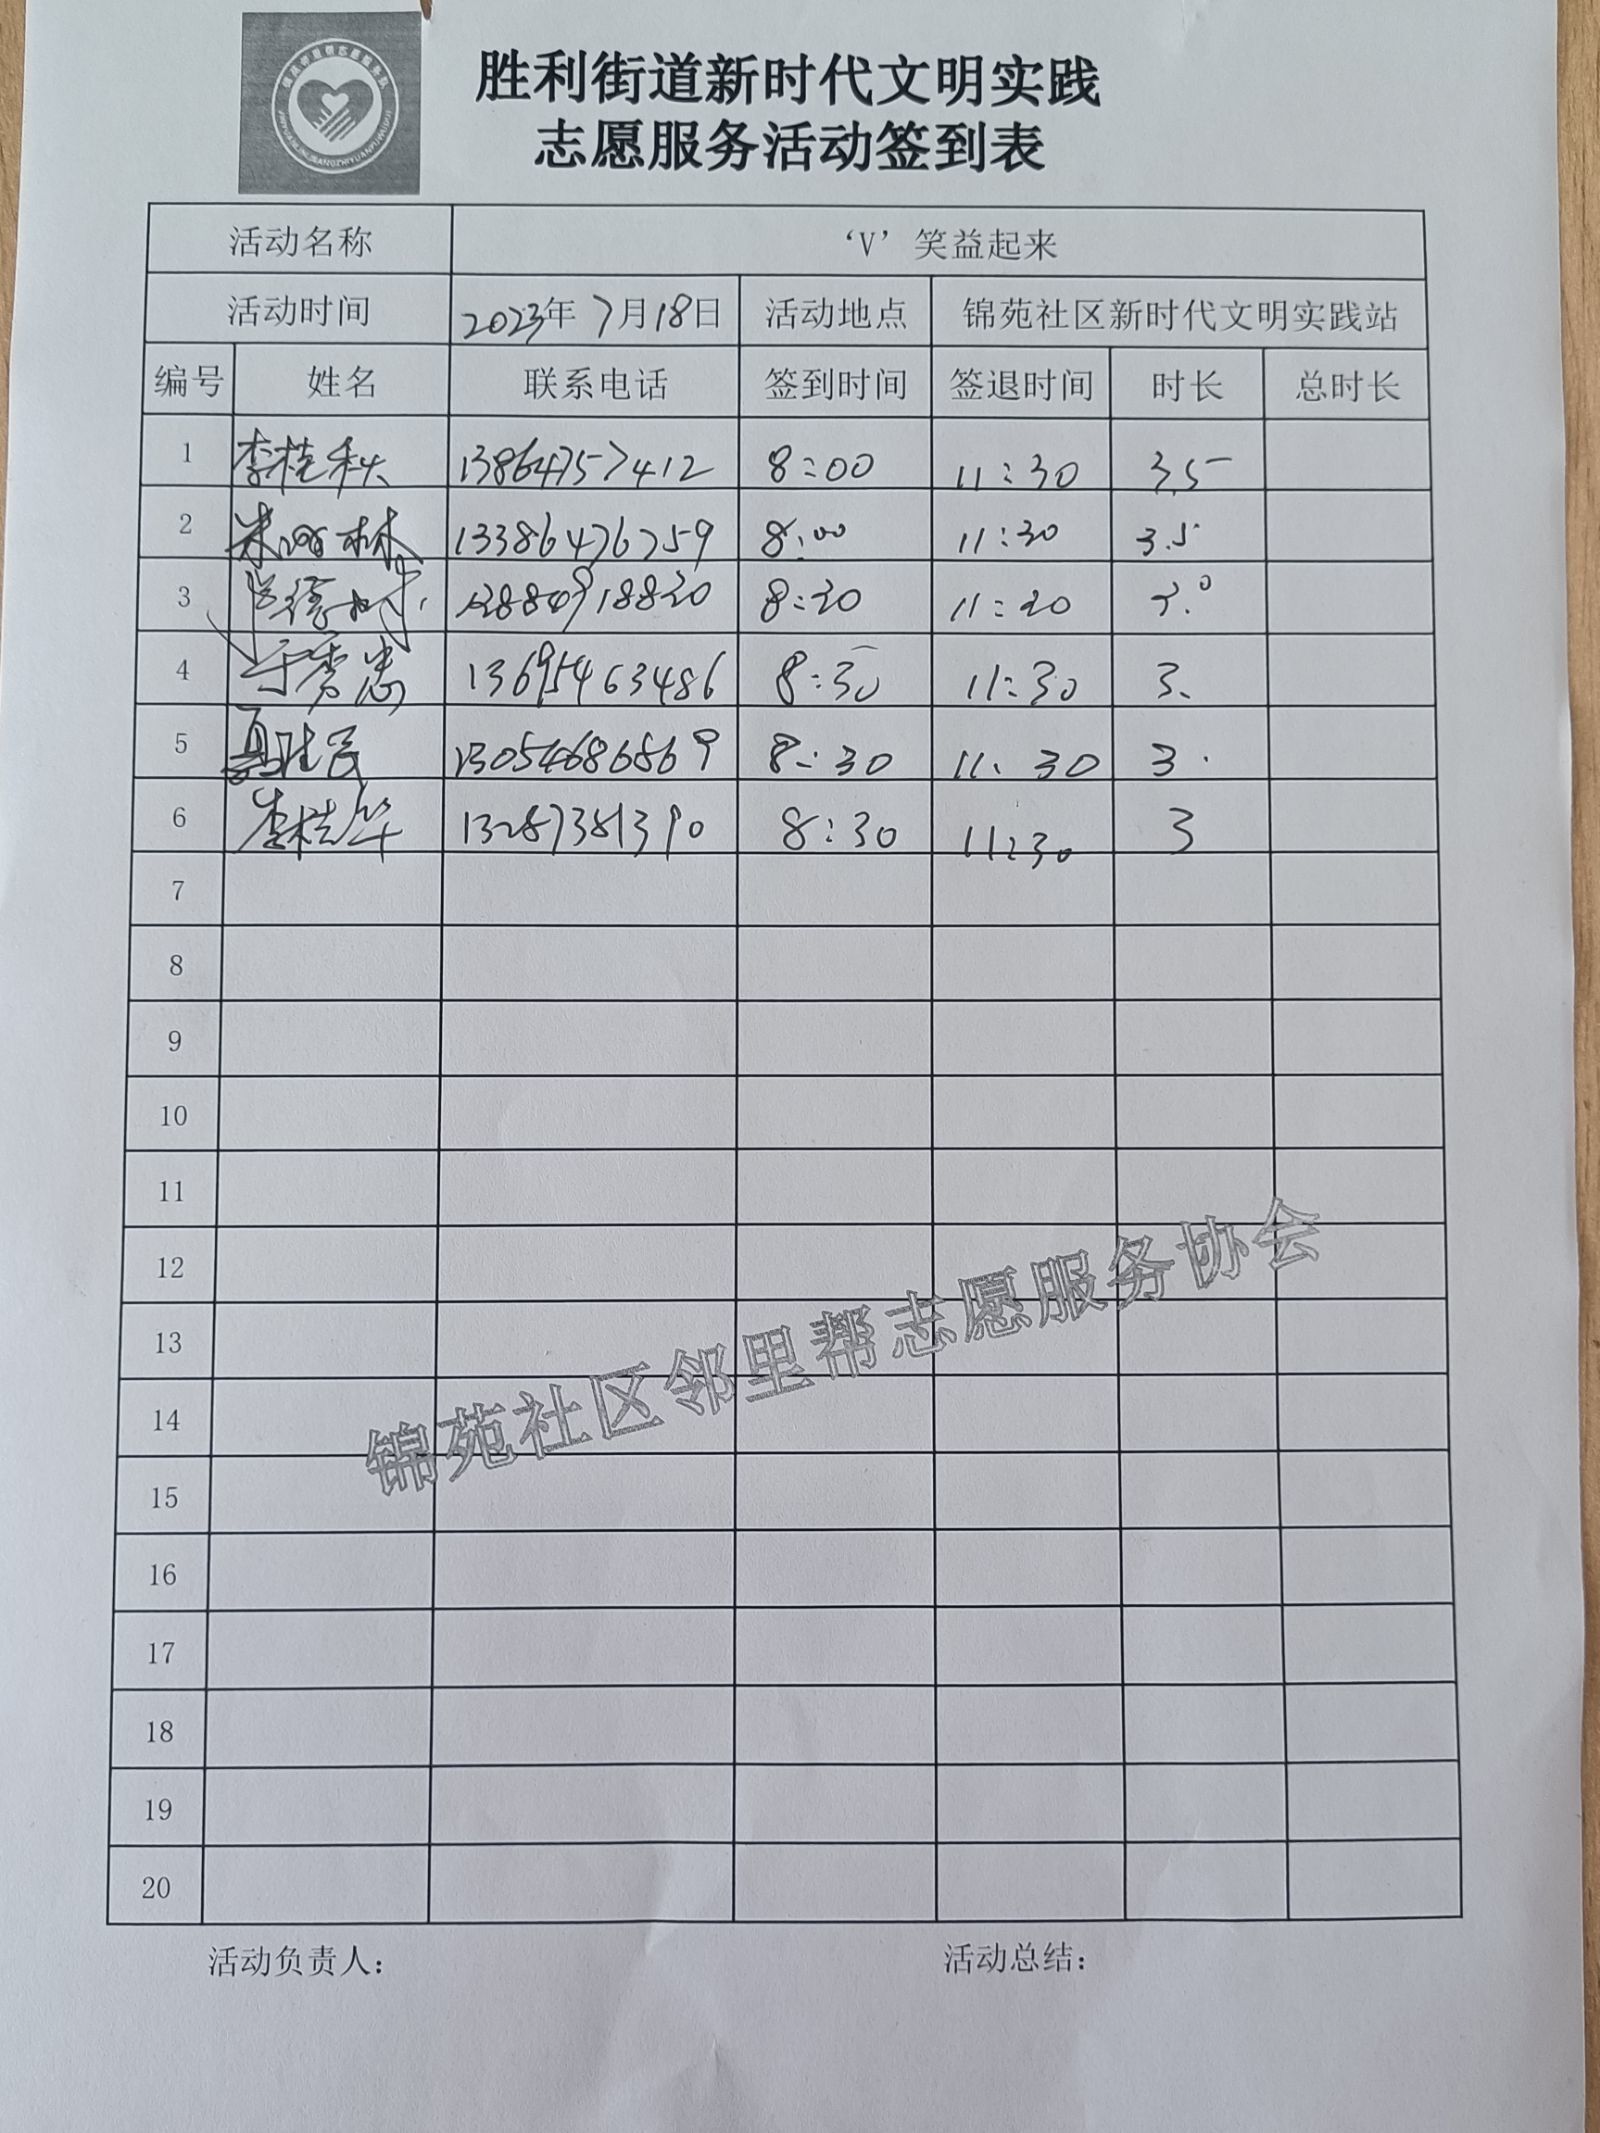 胜利街道新时代文明实践
志愿服务活动签到表
活动名称 ‘V’笑益起来
活动时间 2023年7月18日 活动地点 锦苑社区新时代文明实践站
编号 姓名 联系电话 签到时间 签退时间 时长 总时长
1 李桂秋 13864757412 8:00 11:30 3.5
2 13386476759 8:00 11:30 3.5
3 8:20 11:20
4 于秀忠 13695463486 8:30 11:30 3.
5 夏胜民 13054686869 8:30 11:30 3.
6 李桂华 13287381390 8:30 11:30 3
7
8
9
10
11
12
13
14
15
16
17
18
19
20
锦苑社区邻里帮志愿服务协会
活动负责人： 活动总结：